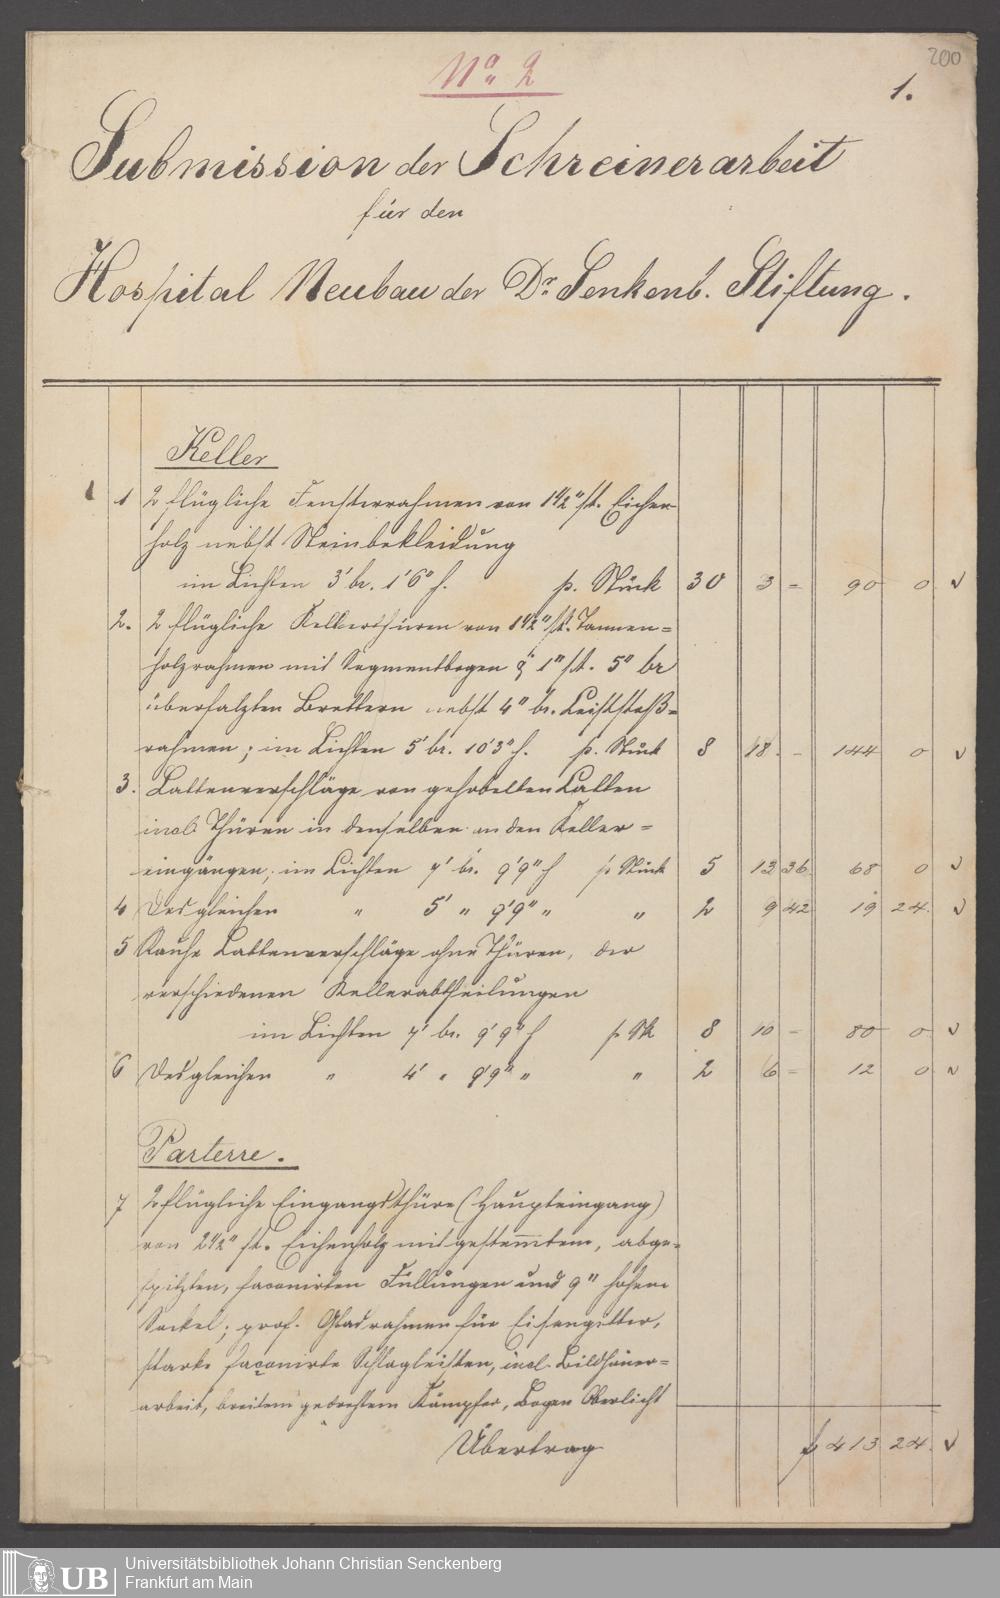 200
No. 2
1.
Submission der Schreinerarbeit
für den
Hospital Neubau der Dr. Senkenb. Stiftung.
Keller
1 2 flügliche Fensterrahmen von 1 1/2" st. Eichen
holz nebst Steinbekleidung
im Lichten 3' br. 1'6" h. p. Stück 30 3 – 90 0
2. 2 flügliche Kellerthüren von 1 1/2" st. Tannen=
holzrahmen mit Segmentbogen & 1" st. 5" br
überfalzten Brettern nebst 4" br.
rahmen; im Lichten 5' br. 10'3" h. p. Stück 8 18 – 144 0
3. Lattenverschläge von gehobelten Latten
incl. Thüren in denselben an den Keller=
eingängen; im Lichten 7' br. 9'9" h p Stück 5 13 36 68 0
4 Desgleichen " 5' " 9'9" " " 2 9 42 19 24
5 Rauhe Lattenverschläge ohne Thüren, der
verschiedenen Kellerabtheilungen
im Lichten 7' br. 9'9" h p. Stk 8 10 – 80 0
6 Desgleichen " 4' " 9'9" " " 2 6 – 12 0
Parterre.
7 2 flügliche Eingangsthüre (Haupteingang)
von 2 1/2" st. Eichenholz mit gestemmtem, abge=
spitzten, faconirten Füllungen und 9" hohem
Sockel; prof. Glasrahmen für Eisengitter,
starke façonirte Schlagleisten, incl. Bildhauer=
arbeit, breitem Kämpfer, Bogen Oberlicht
Übertrag f 413 24
UB
Universitätsbibliothek Johann Christian Senckenberg
Frankfurt am Main